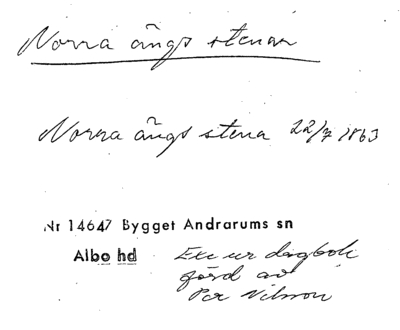 Norra ängs stenar
Norra ängs stena 22/7 1863
Nr 14647 Bygget Andrarums sn
Albo hd Exc ur dagbok
förd av
Per Nilsson